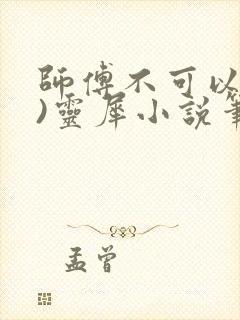 師傅不可以
)靈犀小説
孟曾